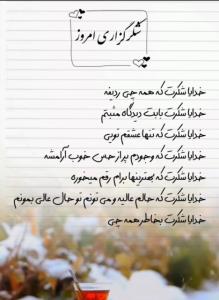 شکرگزاری امروز
خدایا شکرت که همه چی ردیفه
خدایا شکرت بابت دیدگاه مثبتم
خدایا شکرت که تنها عشقم تویی
خدایا شکرت که وجودم پر از حس خوب آرامشه
خدایا شکرت که بهترینها برام رقم میخوره
خدایا شکرت که حالم عالیه و می تونم تو حال عالی بمونم
خدایا شکرت بخاطر همه چی